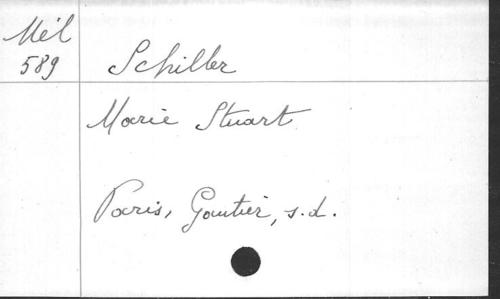 Mél
589
Schiller
Marie Stuart
Paris, Gautier, s.d.